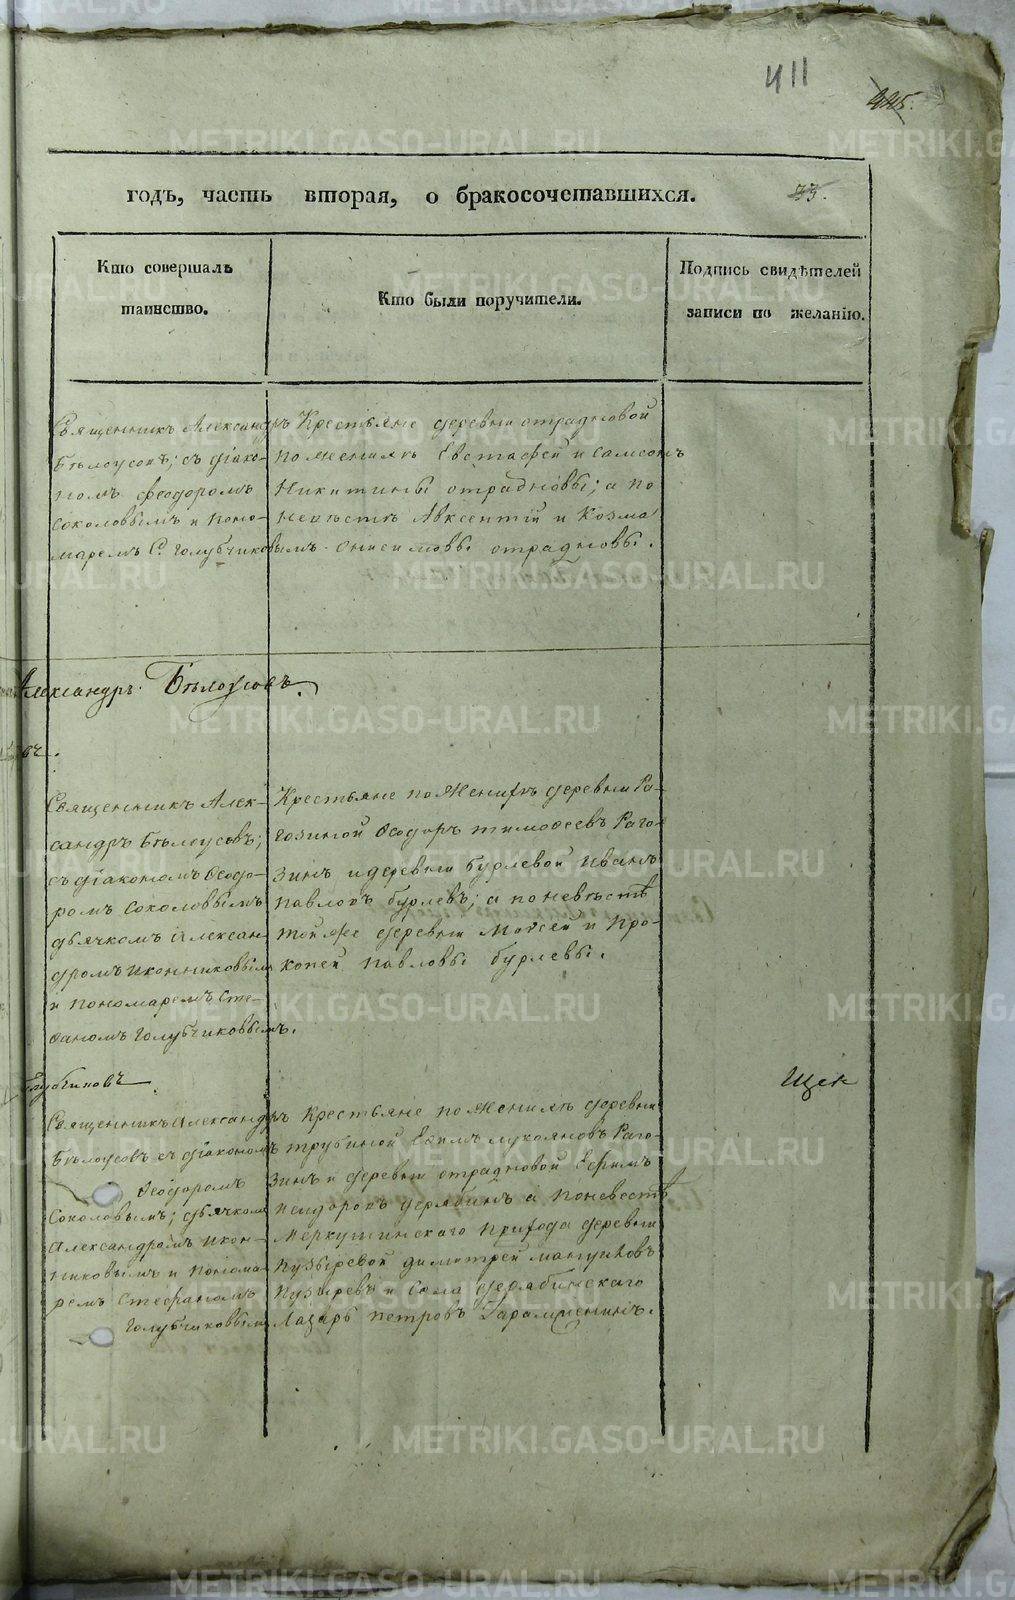 411
445.
годъ, часть вторая, о бракосочетавшихся.
33.
Кто совершалъ
таинство.
Кто были поручители.
Подпись свидѣтелей
записи по желанію.
Священникъ Александръ
Бѣлоусовъ; съ діако-
номъ Феодоромъ
Соколовымъ и поно-
маремъ С. Голубчиковымъ.
Крестьяне деревни отрадновой
по женихѣ Евстафей и Самсонъ
Никитины отрадновы; а по
невѣстѣ Авксентій и Козма
Онисимовы отрадновы.
Александръ Бѣлоусовъ.
Священникъ Алек-
сандръ Бѣлоусовъ;
съ діакономъ Ѳеодо-
ромъ Соколовымъ
дьячкомъ Алексан-
дромъ Иконниковымъ
и пономаремъ Сте-
ѳаномъ Голубчиковымъ.
Крестьяне по женихѣ деревни Ра-
гозиной Ѳеодоръ тимоѳеевъ Раго-
зинъ и деревни бурлевой Иванъ
павловъ бурлевъ; а по невѣстѣ
той же деревни Моисей и Про-
копей павловы бурлевы.
Щек
Священникъ Александръ
Бѣлоусовъ съ діакономъ
Ѳеодоромъ
Соколовымъ; дьячкомъ
Александромъ Икон-
никовымъ и понома-
ремъ Стефаномъ
Голубчиковымъ
Крестьяне по женихѣ деревни
трубиной Ефимъ лукояновъ Раго-
зинъ и деревни отрадновой Ефимъ
дерябинъ а по невестѣ
Меркушинскаго прихода деревни
пузыревой димитрей
пузыревъ и села дерябинскаго
Лазарь петровъ